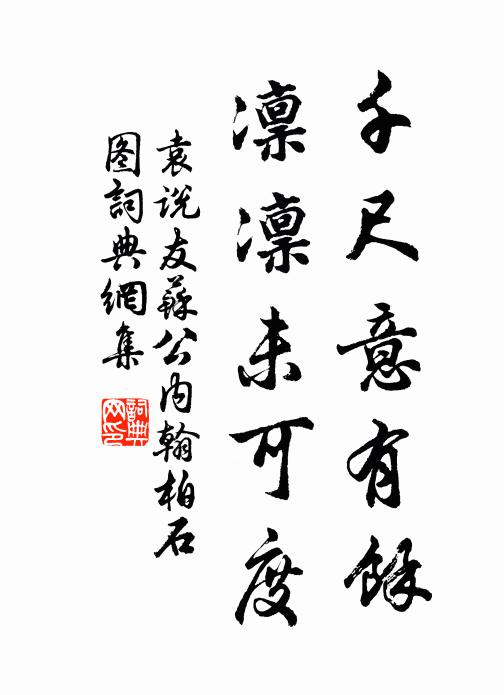 千尺意有餘
凛凛未可度
袁说友蘇公内翰柏石
图詞典網集
詞典网印